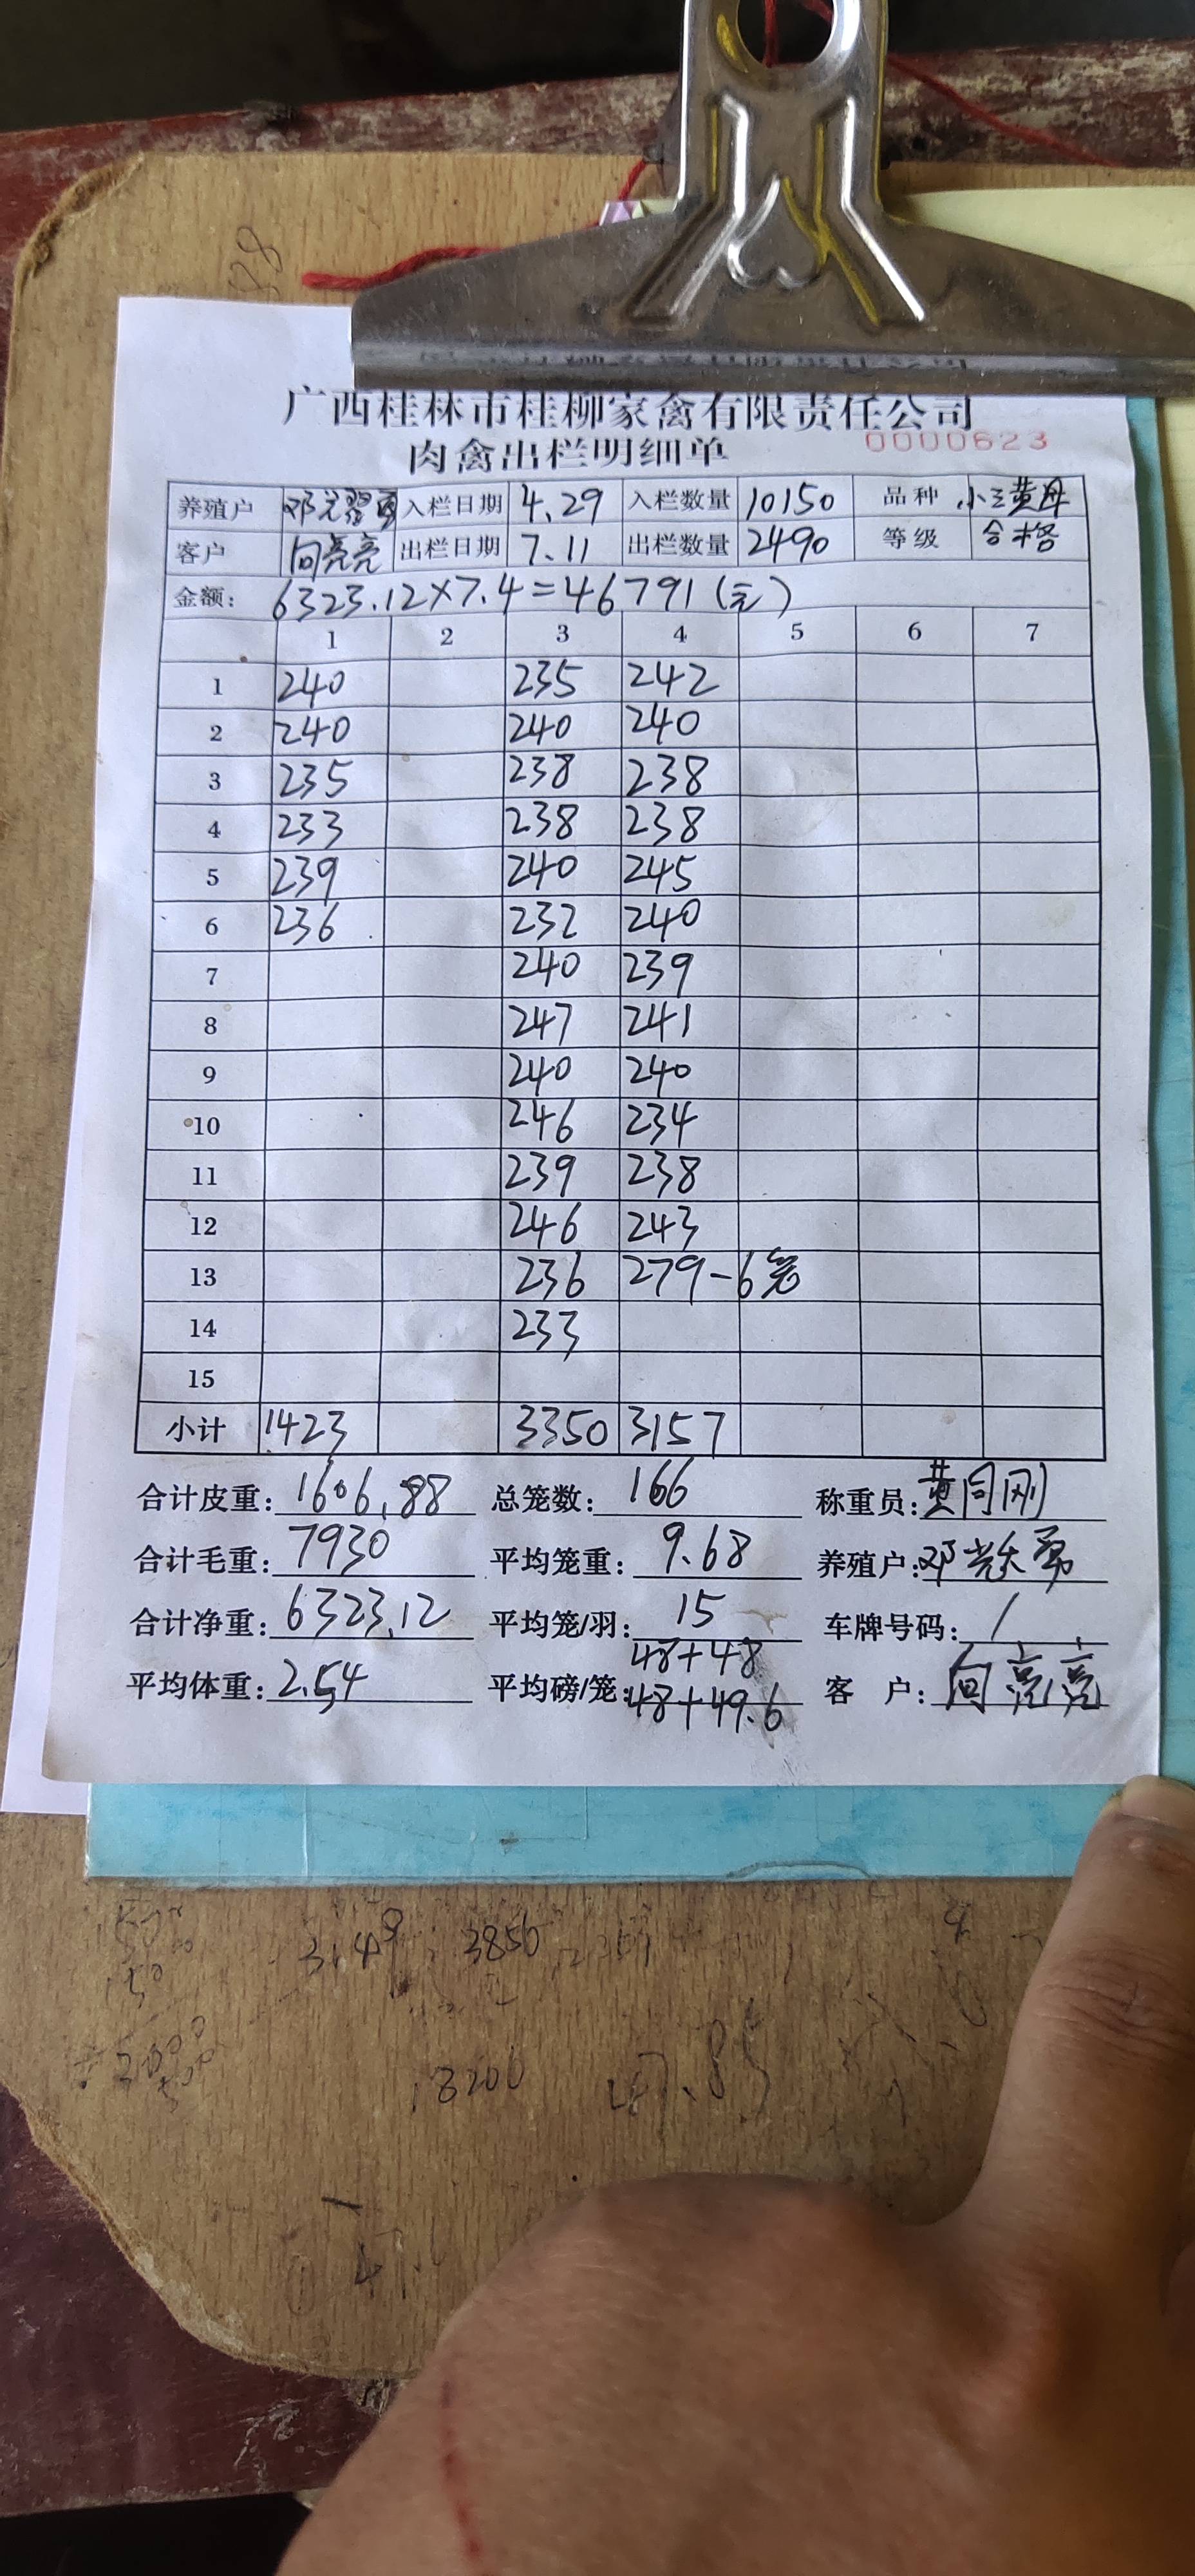 广西桂林市桂柳家禽有限责任公司
肉禽出栏明细单
0000623
养殖户 入栏日期 4.29 入栏数量 10150 品种 小三黄母
客户 向亮亮 出栏日期 7.11 出栏数量 2490 等级 合格
金额: 6323.12×7.4=46791(元)
1 2 3 4 5 6 7
1 240 235 242
2 240 240 240
3 235 238 238
4 233 238 238
5 239 240 245
6 236 232 240
7 240 239
8 247 241
9 240 240
10 246 234
11 239 238
12 246 243
13 236 279-6笼
14 233
15
小计 1423 3350 3157
合计皮重: 1606.88 总笼数: 166 称重员: 黄同刚
合计毛重: 7930 平均笼重: 9.68 养殖户:
合计净重: 6323.12 平均笼/羽: 15 车牌号码: /
平均体重: 2.54 平均磅/笼: 48+48 48+49.6 客 户: 向亮亮
3850